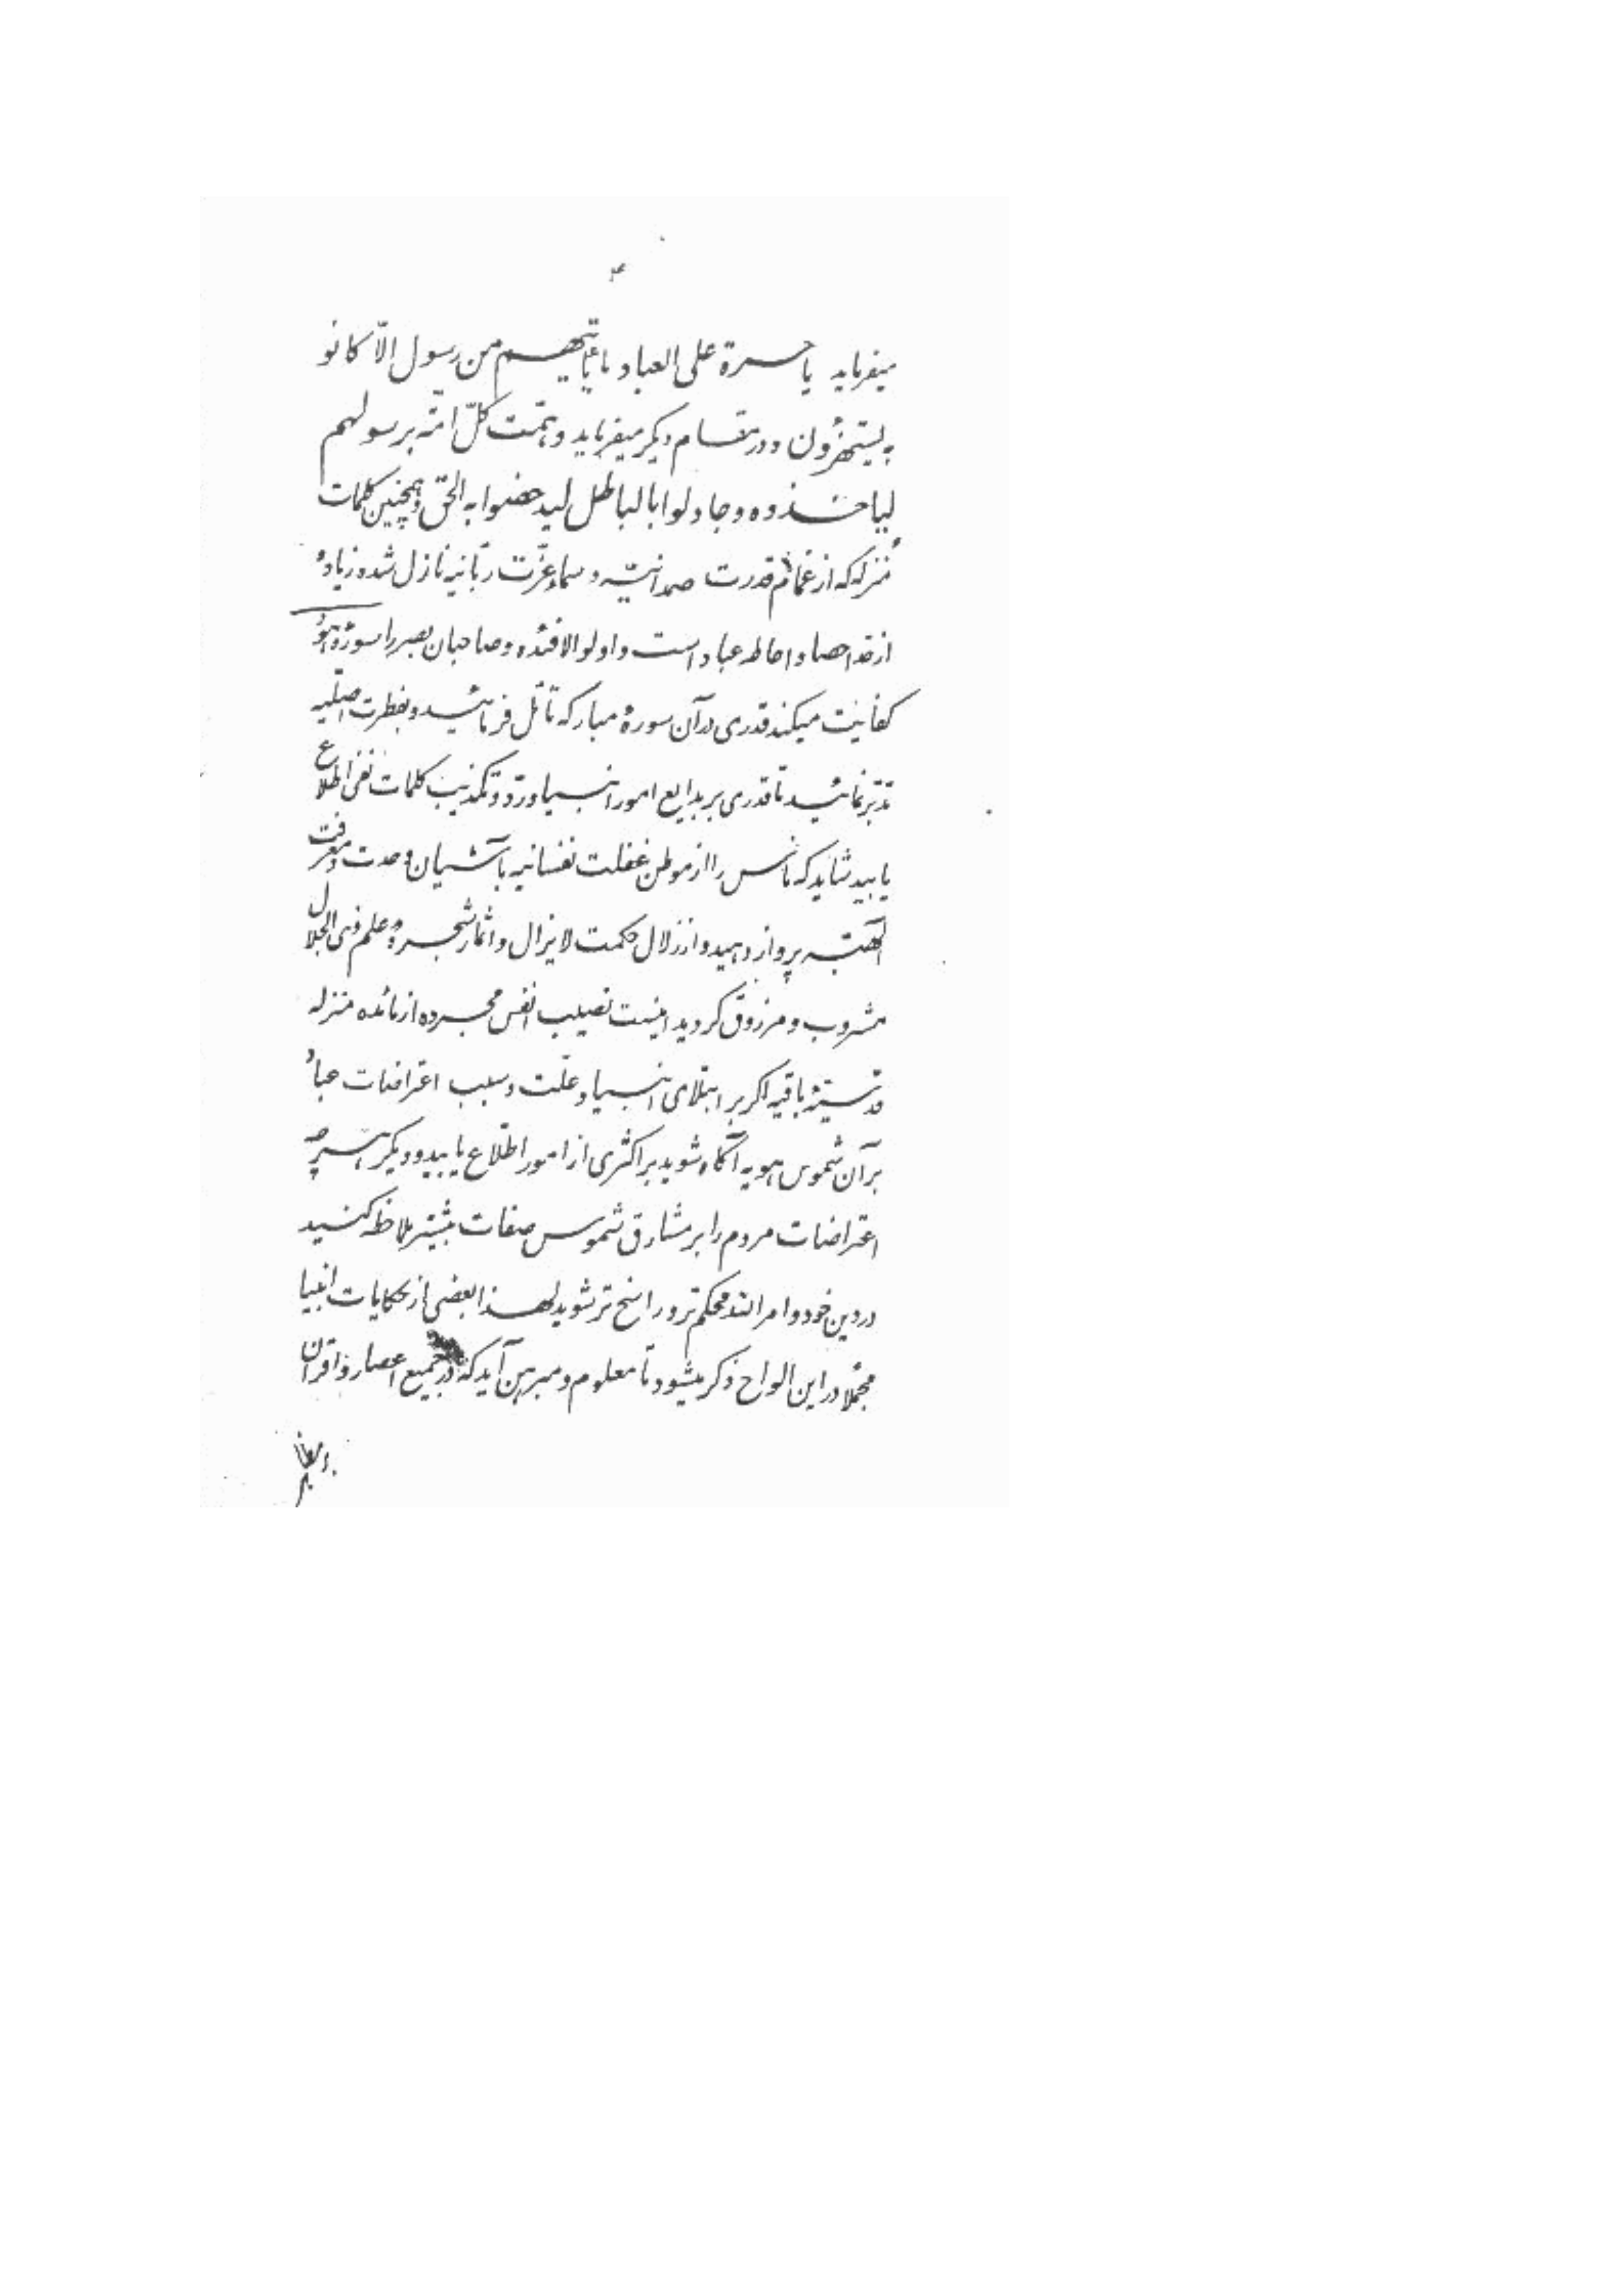 ۴
میفرماید یا حسرة علی العباد ما یأتیهم من رسول الّا کانو
به یستهزؤن و در مقام دیگر میفرماید و همّت کلّ امّة برسولهم
لیاخذوه و جادلوا بالباطل لیدحضوا به الحقّ و همچنین کلمات
مُنزله که از غمام قدرت صمدانیّه و سماء عزّت ربّانیه نازل شده زیاده
از حدّ احصا و احاطه عباد است و اولو الافئده و صاحبان بصر را سورهٔ هود
کفایت میکند قدری در آن سورهٔ مبارکه تأمّل فرمائید و بفطرت اصلّیه
تدبّر نمائید تا قدری بر بدایع امور انبیا و ردّ و تکذیب کلمات نفی اطّلاع
یابید شاید که ناس را از موطن غفلت نفسانیه بآشیان وحدت و معرفت
الهیّه پرواز دهید و از زلال حکمت لایزال و اثمار شجرهٔ علم ذی الجلال
مشروب و مرزوق گردید اینست نصیب انفس مجرده از مائده منزله
قدسیّهٔ باقیه اگر بر ابتلای انبیا و علّت و سبب اعتراضات عباد
بر آن شموس هویه آگاه شوید بر اکثری از امور اطّلاع یابید و دیگر هرچه
اعتراضات مردم را بر مشارق شموس صفات بیشتر ملاحظه کنید
در دین خود و امر الله محکم‌تر و راسخ‌تر شوید لهذا بعضی از حکایات انبیا
مجملاً در این الواح ذکر میشود تا معلوم و مبرهن آید که در جمیع اعصار و اقران
بر مظاهر